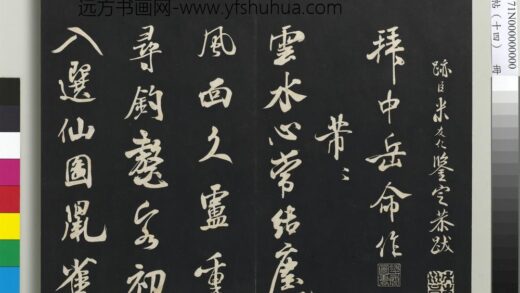 远方书画网-www.yfshuhua.com
71N000000000
帖（十四）
跡臣米友仁鑒定恭跋
拜中岳命作
芾〻
雲水心常結塵
風面久盧重
尋釣鼇客初
入選仙圖鼠雀